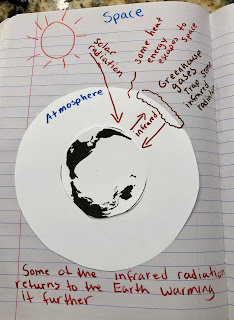 Space
Solar
radiation
some heat
energy
escapes to
space
Greenhouse
gases
Trap some
infrared
radiation
Atmosphere
infrared
Some of the infrared radiation
returns to the Earth warming
it further